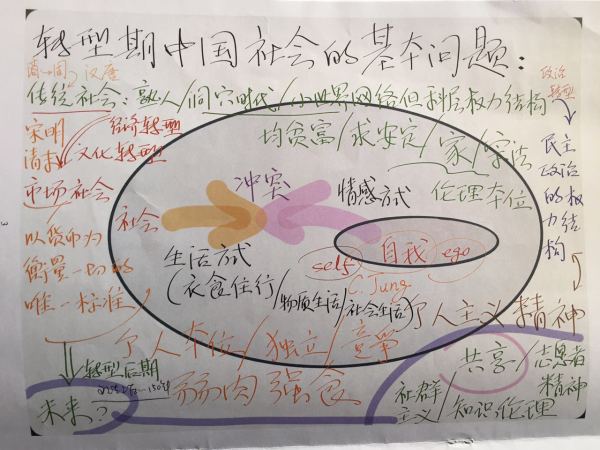 转型期中国社会的基本问题：
汉唐
政治
转型
传统社会：熟人/洞穴时代/小世界网络但科层权力结构
宋明
清末
经济转型
文化转型
均贫富/求安定/家/宗法
伦理本位
民主
政治
的权
力结
构
市场社会
社会
冲突
情感方式
以货币为
衡量一切的
唯一标准
生活方式
self
自我
ego
C. Jung
(衣食住行/物质生活/社会生活)
个人主义精神
个人本位/独立/竞争
转型后期
弱肉强食
未来？
共享/志愿者
精神
社群
主义/知识伦理
3